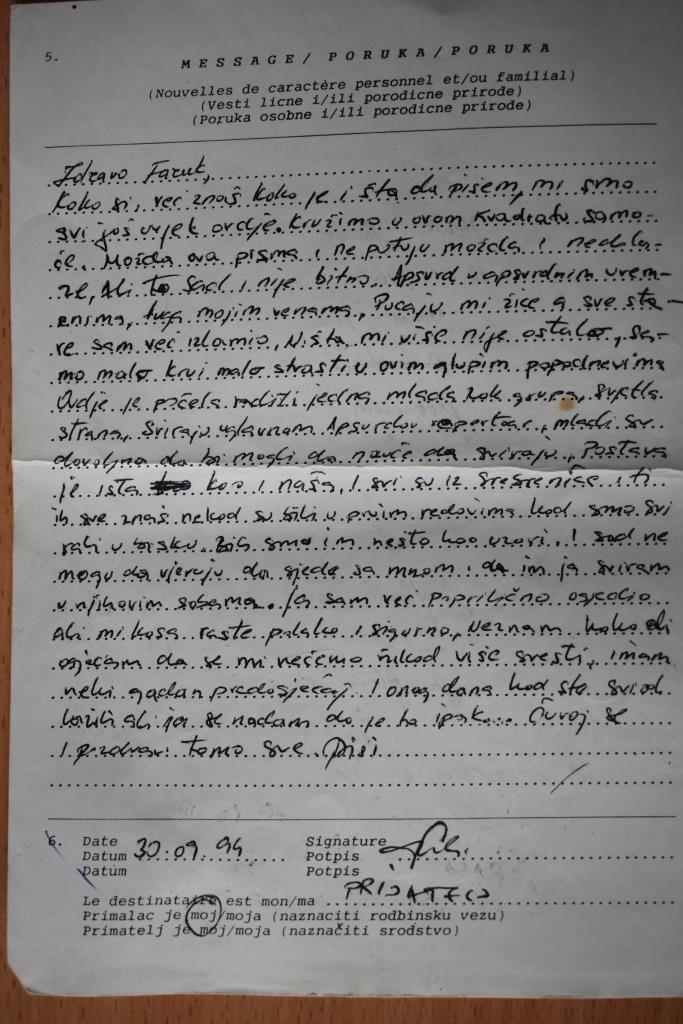 5.
MESSAGE/ PORUKA/PORUKA
(Nouvelles de caractère personnel et/ou familial)
(Vesti licne i/ili porodicne prirode)
(Poruka osobne i/ili porodicne prirode)
Zdravo Faruk,
Kako si, već znaš kako je i šta da pišem, mi smo
svi još uvjek ovdje. Kružimo u ovom kvadratu samo-
će. Možda ova pisma i ne putuju možda i nedola-
ze, ali to sad i nije bitno. Apsurd u apsurdnim vrem-
enima, tuga mojim venama, Pucaju mi žice a sve sta-
re sam već izlomio, Ništa mi više nije ostalo, sa-
mo malo krvi malo strasti u ovim glupim popodnevima
Ovdje je počela raditi jedna mlada rok grupa, svjetla
strana, Sviraju uglavnom Apsurdov repertoar, mladi su
dovoljno da bi mogli da nauče da sviraju, Postava
je ista kao i naša, I svi su iz Srebrenice i ti
ih sve znaš nekad su bili u prvim redovima kad smo svi
rali u disku. Bili smo im nešto kao uzori, I sad ne
mogu da vjeruju da sjede sa mnom i da im ja sviram
u njihovim sobama. Ja sam već poprilično osjedio
Ali mi kosa raste polako i sigurno, Neznam kako ali
osjećam da se mi nećemo nikad više sresti, imam
neki gadan predosjećaj I onog dana kad ste
ali ja se nadam da je to ipak... Čuvaj se
I pozdravi tamo sve Piši
6. Date
Datum 30.09.94
Datum
Signature
Potpis
Potpis
Le destinataire est mon/ma PRIJATELJ
Primalac je moj/moja (naznaciti rodbinsku vezu)
Primatelj je moj/moja (naznačiti srodstvo)